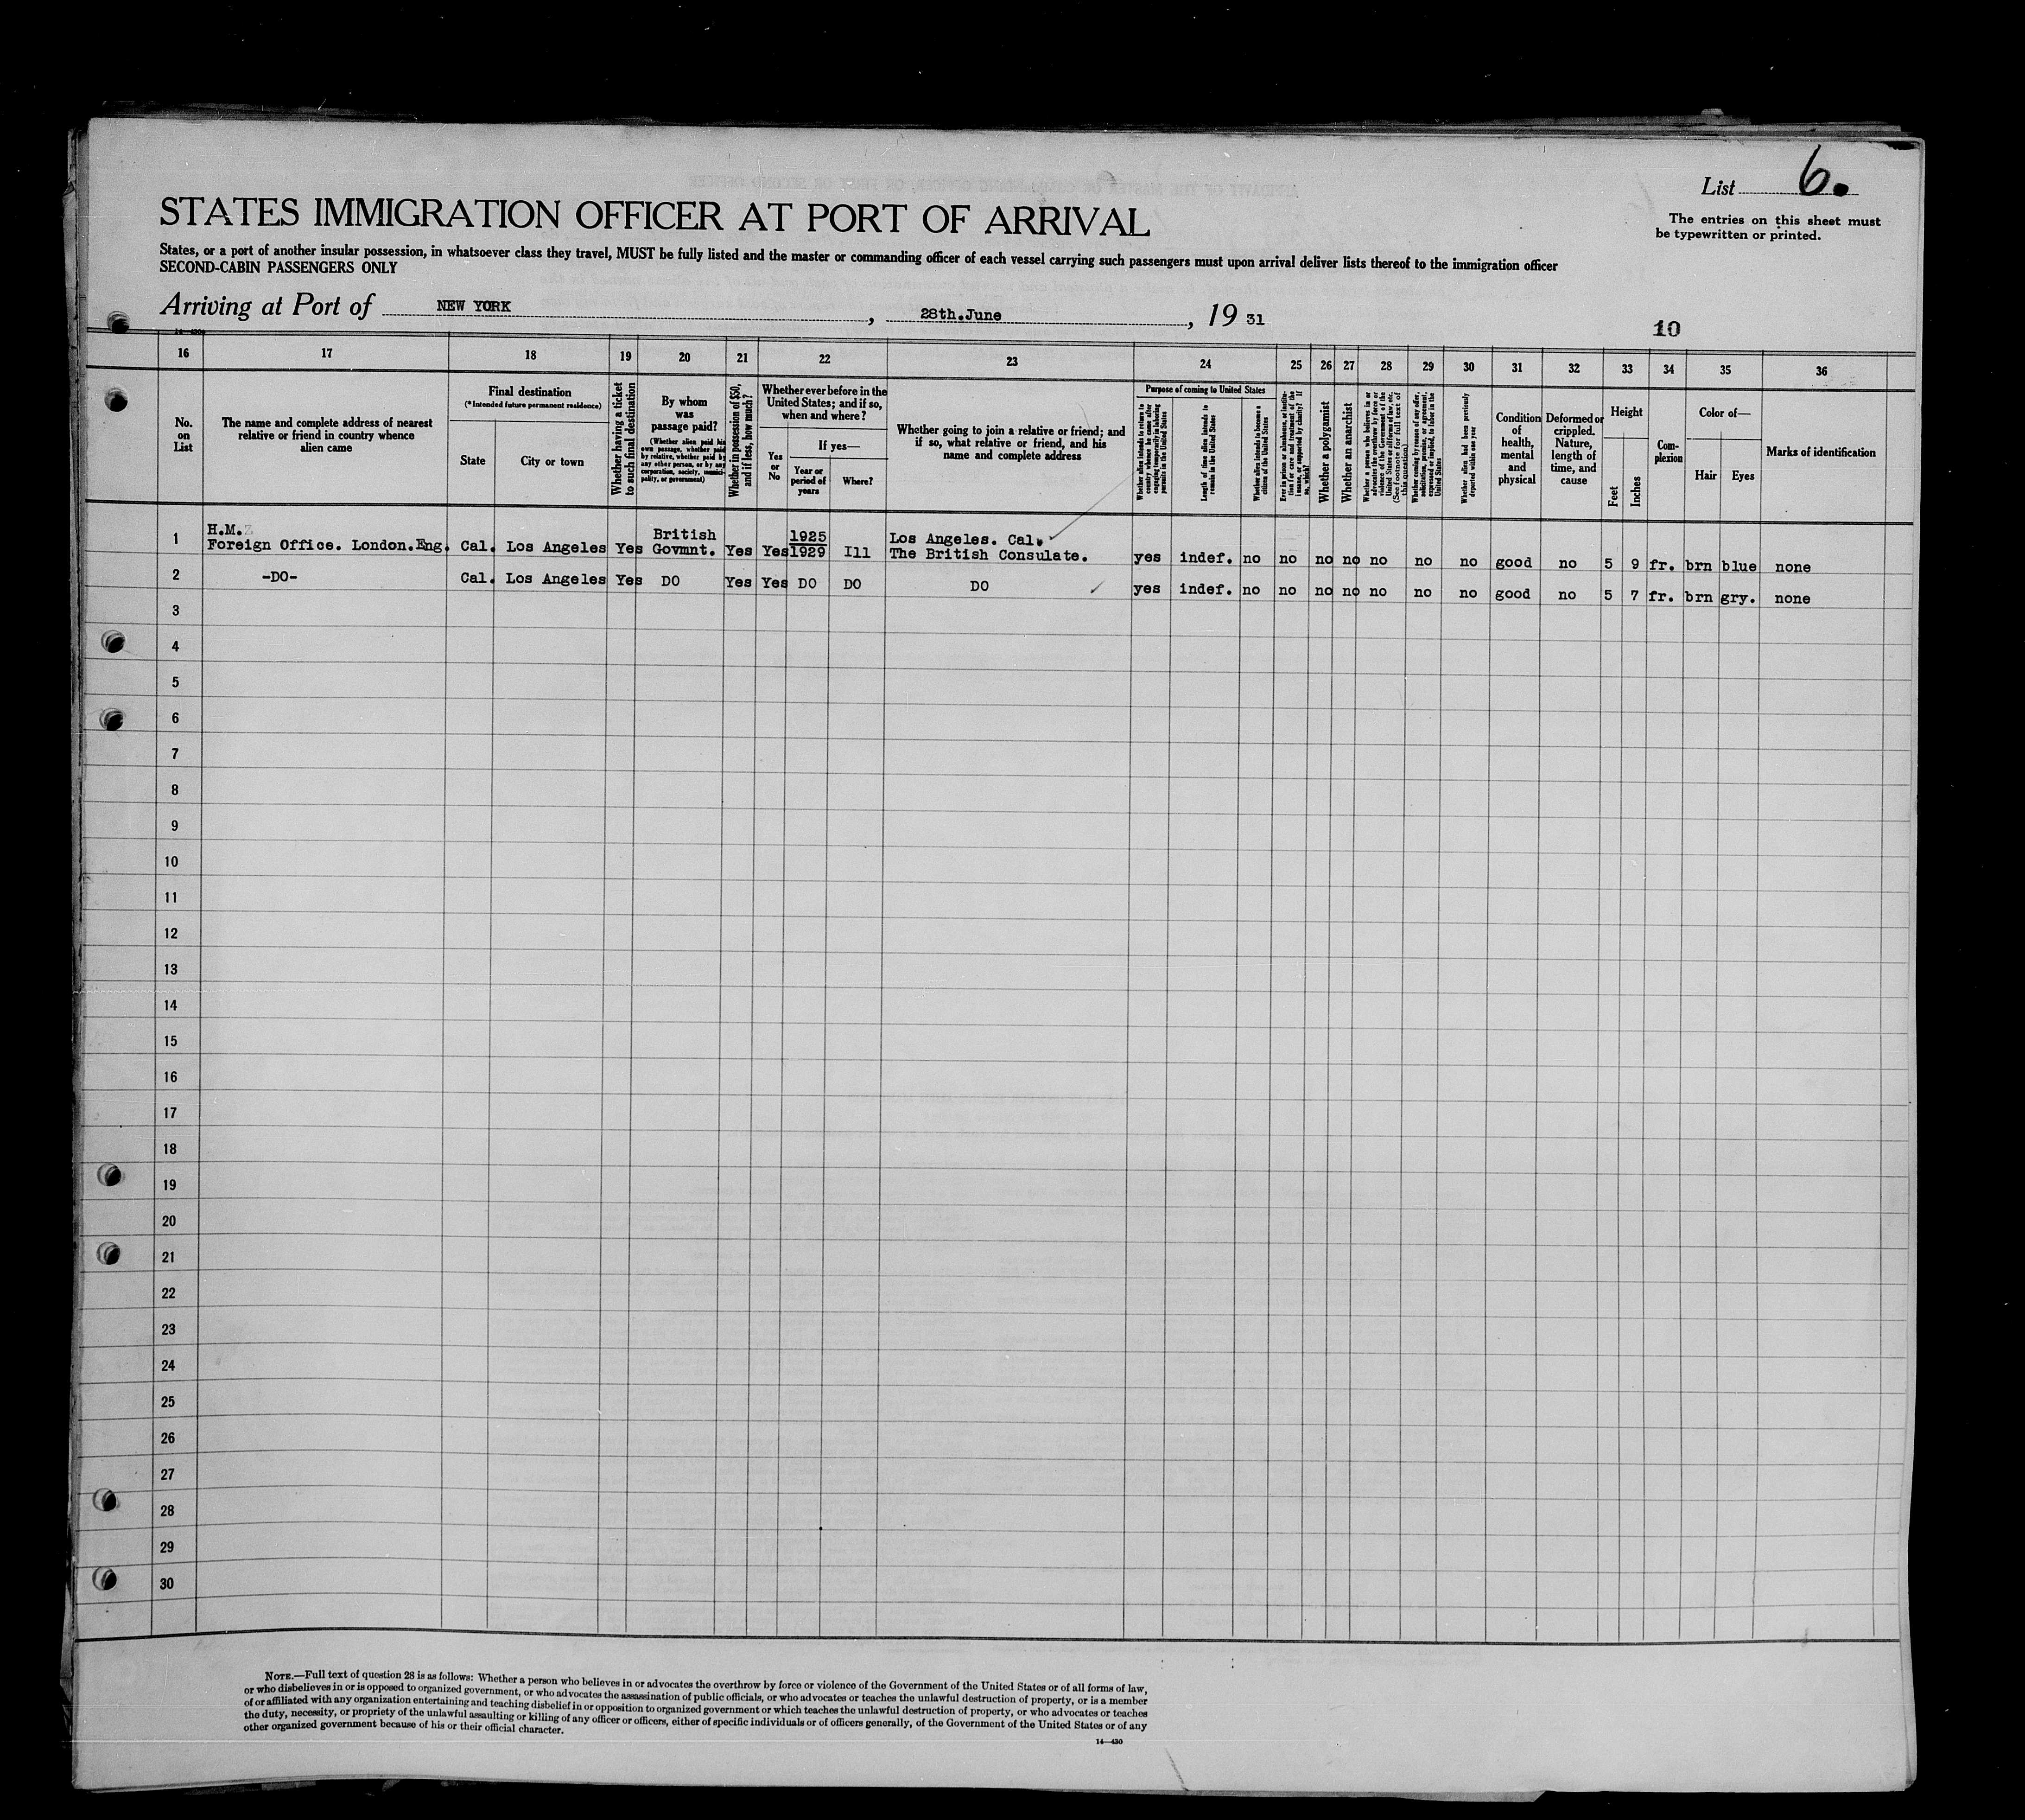 List 6.
STATES IMMIGRATION OFFICER AT PORT OF ARRIVAL
The entries on this sheet must
be typewritten or printed.
States, or a port of another insular possession, in whatsoever class they travel, MUST be fully listed and the master or commanding officer of each vessel carrying such passengers must upon arrival deliver lists thereof to the immigration officer
SECOND-CABIN PASSENGERS ONLY
Arriving at Port of NEW YORK, 28th.June, 19 31
10
16 17 18 19 20 21 22 23 24 25 26 27 28 29 30 31 32 33 34 35 36
No.
on
List
The name and complete address of nearest
relative or friend in country whence
alien came
Final destination
(*Intended future permanent residence)
State
City or town
Whether having a ticket
to such final destination
By whom
was
passage paid?
(Whether alien paid his
own passage, whether paid
by relative, whether paid by
any other person, or by any
corporation, society, munici-
pality, or government)
Whether in possession of $50,
and if less, how much?
Whether ever before in the
United States; and if so,
when and where?
Yes
or
No
If yes—
Year or
period of
years
Where?
Whether going to join a relative or friend; and
if so, what relative or friend, and his
name and complete address
Purpose of coming to United States
Whether alien intends to return to
country whence he came after
engaging temporarily in laboring
pursuits in the United States
Length of time alien intends to
remain in the United States
Whether alien intends to become a
citizen of the United States
Ever in prison or almshouse, or institu-
tion for care and treatment of the
insane, or supported by charity? If
so, which?
Whether a polygamist
Whether an anarchist
Whether a person who believes in or
advocates the overthrow by force or
violence of the Government of the
United States or all forms of law, etc.
(See footnote for full text of
this question)
Whether coming by reason of any offer,
solicitation, promise, or agreement,
expressed or implied, to labor in the
United States
Whether alien had been previously
deported within one year
Condition
of
health,
mental
and
physical
Deformed or
crippled.
Nature,
length of
time, and
cause
Height
Feet
Inches
Com-
plexion
Color of—
Hair
Eyes
Marks of identification
1 H.M.
Foreign Office. London.Eng. Cal. Los Angeles Yes British Govmnt. Yes Yes 1925 1929 Ill Los Angeles. Cal. The British Consulate. yes indef. no no no no no no no good no 5 9 fr. brn blue none
2 -DO- Cal. Los Angeles Yes DO Yes Yes DO DO DO yes indef. no no no no no no no good no 5 7 fr. brn gry. none
3
4
5
6
7
8
9
10
11
12
13
14
15
16
17
18
19
20
21
22
23
24
25
26
27
28
29
30
NOTE.—Full text of question 28 is as follows: Whether a person who believes in or advocates the overthrow by force or violence of the Government of the United States or of all forms of law,
or who disbelieves in or is opposed to organized government, or who advocates the assassination of public officials, or who advocates or teaches the unlawful destruction of property, or is a member
of or affiliated with any organization entertaining and teaching disbelief in or opposition to organized government or which teaches the unlawful destruction of property, or who advocates or teaches
the duty, necessity, or propriety of the unlawful assaulting or killing of any officer or officers, either of specific individuals or of officers generally, of the Government of the United States or of any
other organized government because of his or their official character.
14—430